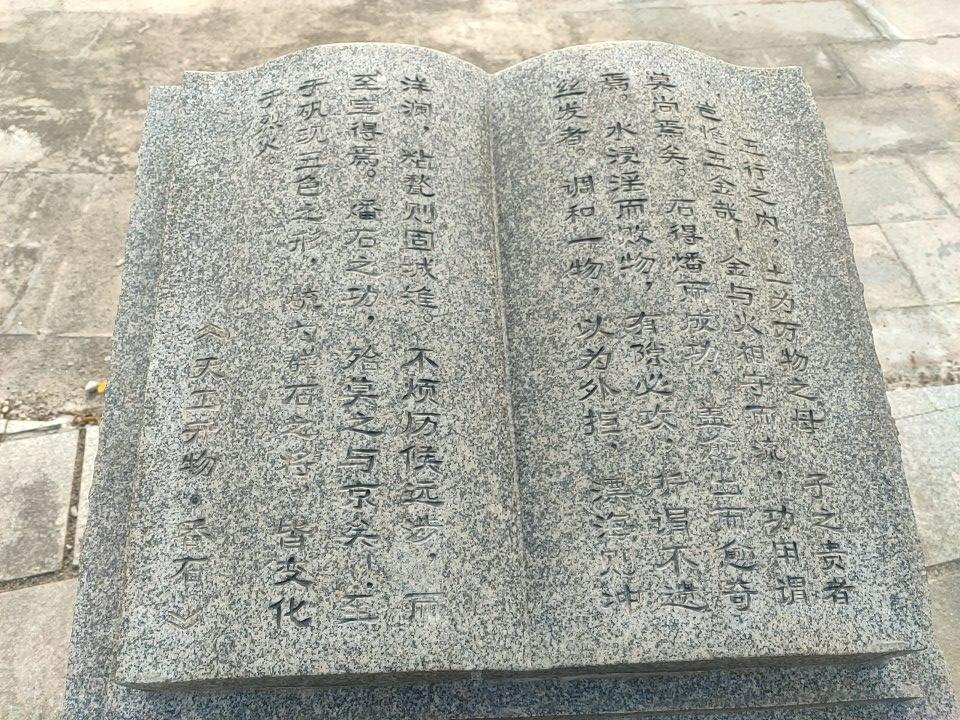 五行之内，土为万物之母 子之贵者
，岂惟五金哉！金与火相守而流，功用谓
莫尚焉矣。石得燔而成功，盖愈出而愈奇
焉。水浸淫而败物，有隙必攻，所谓不遗
丝发者。调和一物，以为外拒，漂海则冲
洋澜，粘甃则固城雉。不烦历候远涉，而
至宝得焉。燔石之功，殆莫之与京矣！，至
于矾现五色之形，硫为群石之将，皆变化
于烈火。
《天工开物·燔石》